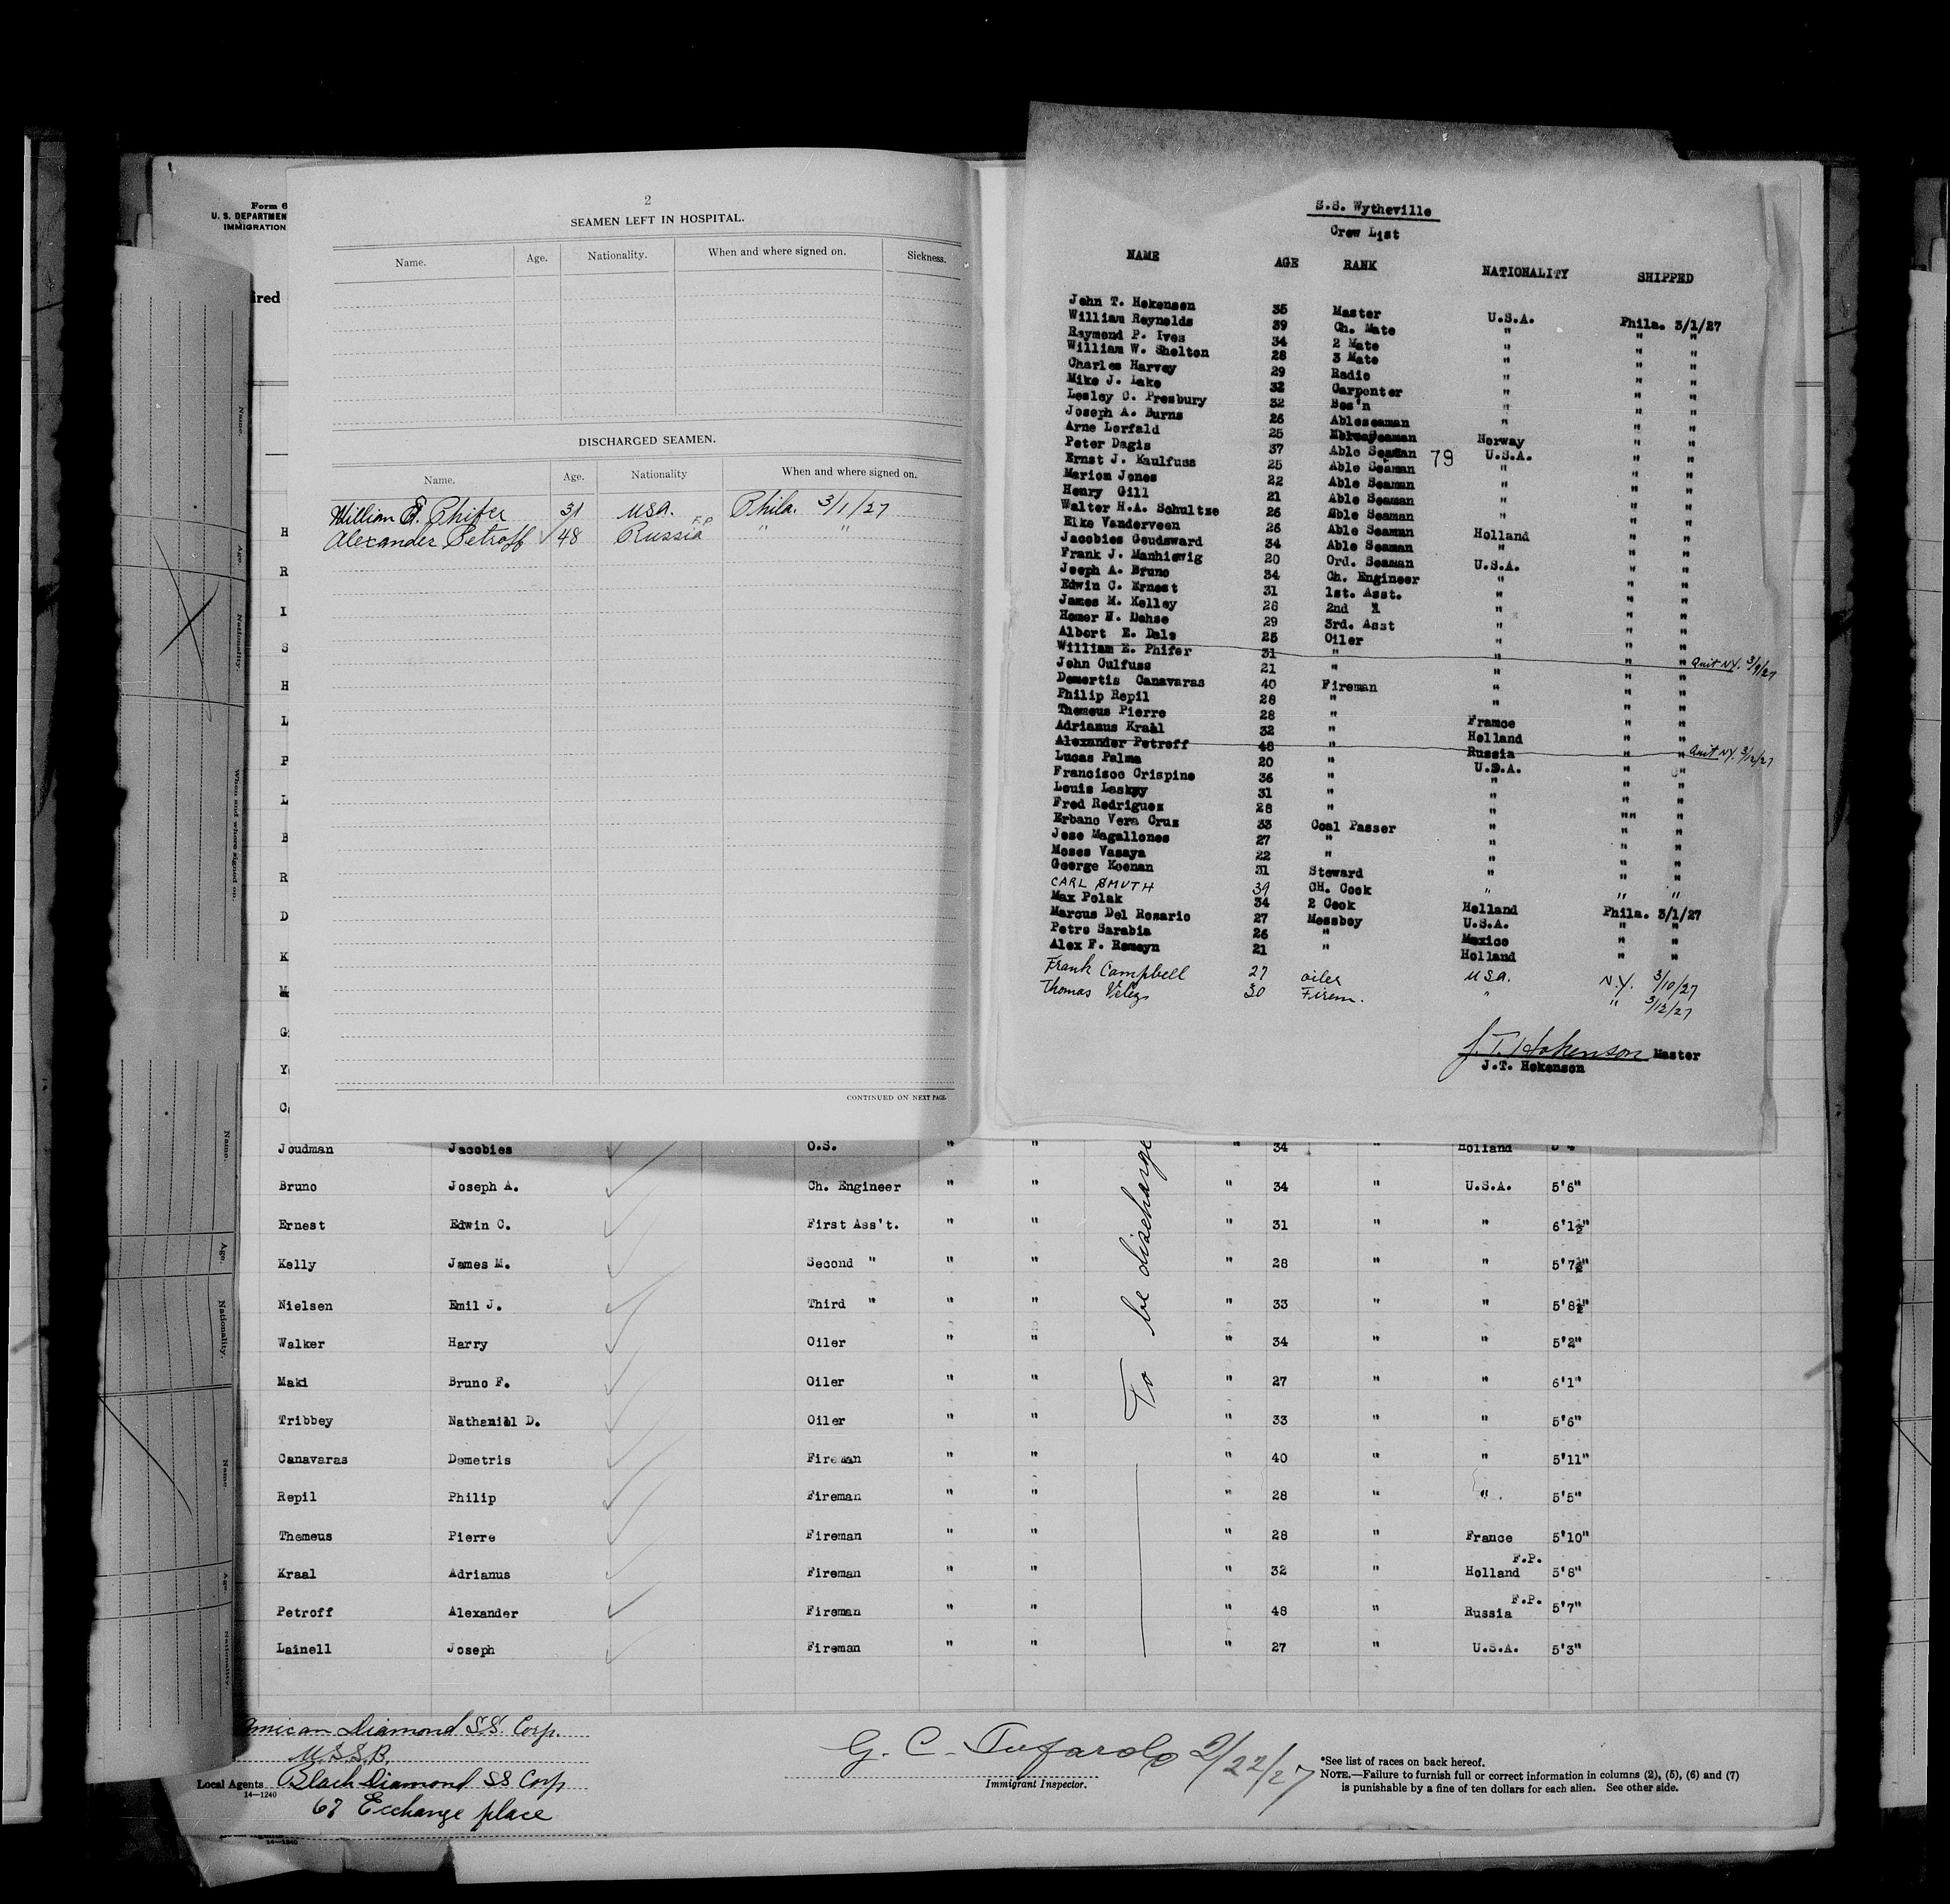 Form 6
U. S. DEPARTMEN
IMMIGRATION
ired
2
SEAMEN LEFT IN HOSPITAL.
Name. Age. Nationality. When and where signed on. Sickness.
DISCHARGED SEAMEN.
Name. Age. Nationality When and where signed on.
William E. Phifer 31 USA. Phila. 3/1/27
Alexander Petroff 48 Russia F.P. " "
CONTINUED ON NEXT PAGE
H
R
I
S
H
L
P
L
B
R
D
K
M
G
Y
C
S.S. Wytheville
Crew List
NAME AGE RANK NATIONALITY SHIPPED
John T. Hokenson 35 Master U.S.A. Phila. 3/1/27
William Reynolds 39 Ch. Mate " " "
Raymond P. Ives 34 2 Mate " " "
William W. Shelton 28 3 Mate " " "
Charles Harvey 29 Radio " " "
Mike J. Lake 32 Carpenter " " "
Lesley C. Presbury 32 Bos'n " " "
Joseph A. Burns 26 Ableseaman " " "
Arne Lorfald 25 Seaman Norway " "
Peter Dagis 37 Able Seaman 79 U.S.A. " "
Ernst J. Kaulfuss 25 Able Seaman " " "
Marion Jones 22 Able Seaman " " "
Henry Gill 21 Able Seaman " " "
Walter H.A. Schultze 26 Able Seaman " " "
Eike Vanderveen 26 Able Seaman Holland " "
Jacobies Goudsward 34 Able Seaman " " "
Frank J. Manhiewig 20 Ord. Seaman U.S.A. " "
Joeph A. Bruno 34 Ch. Engineer " " "
Edwin C. Ernest 31 1st. Asst. " " "
James M. Kelley 28 2nd " " " "
Homer H. Dehse 29 3rd. Asst " " "
Albert E. Dals 25 Oiler " " "
William E. Phifer 31 " " " " Quit NY. 3/9/27
John Culfuss 21 " " " "
Demertis Canavaras 40 Fireman " " "
Philip Repil 28 " " " "
Themeus Pierre 28 " France " "
Adrianus Kraal 32 " Holland " "
Alexander Petroff 48 " Russia " " Quit NY. 3/12/27
Lucas Palma 20 " U.S.A. " "
Francisco Crispine 36 " " " "
Louis Laskyy 31 " " " "
Fred Rodriguez 28 " " "" "
Erbano Vera Cruz 33 Coal Passer " " "
Jose Magallones 27 " " " "
Moses Vasaya 22 " " " "
George Keenan 31 Steward " " "
CARL SMUTH 39 CH. Cook " " "
Max Polak 34 2 Cook Holland Phila. 3/1/27
Marcus Del Rosario 27 Messboy U.S.A. " "
Petro Sarabia 26 " Mexico " "
Alex F. Romeyn 21 " Holland " "
Frank Campbell 27 oiler USA. N.Y. 3/10/27
Thomas Velez 30 Firem. " " 3/12/27
J.T. Hokenson Master
J.T. Hokenson
Joudman Jacobies O.S. " " " 34 " Holland 5'4"
Bruno Joseph A. Ch. Engineer " " " 34 " U.S.A. 5'6"
Ernest Edwin C. First Ass't. " " " 31 " " 6'1½"
Kelly James M. Second " " " " 28 " " 5'7½"
Nielsen Emil J. Third " " " " 33 " " 5'8½"
Walker Harry Oiler " " " 34 " " 5'2"
Maki Bruno F. Oiler " " " 27 " " 6'1"
Tribbey Nathaniel D. Oiler " " " 33 " " 5'6"
Canavaras Demetris Fireman " " " 40 " " 5'11"
Repil Philip Fireman " " " 28 " " 5'5"
Themeus Pierre Fireman " " " 28 " France 5'10"
Kraal Adrianus Fireman " " " 32 " Holland F.P. 5'8"
Petroff Alexander Fireman " " " 48 " Russia F.P. 5'7"
Lainell Joseph Fireman " " " 27 " U.S.A. 5'3"
To be discharge
American Diamond SS. Corp.
U.S.S.B.
Local Agents Black Diamond SS Corp
14—1240
67 Exchange place
14—1240
G. C. Tufarolo 2/22/27
Immigrant Inspector.
*See list of races on back hereof.
NOTE.—Failure to furnish full or correct information in columns (2), (5), (6) and (7)
is punishable by a fine of ten dollars for each alien. See other side.
Name.
Age.
Nationality.
When and where signed on.
Name.
Age.
Nationality.
Name.
Age.
Nationality.